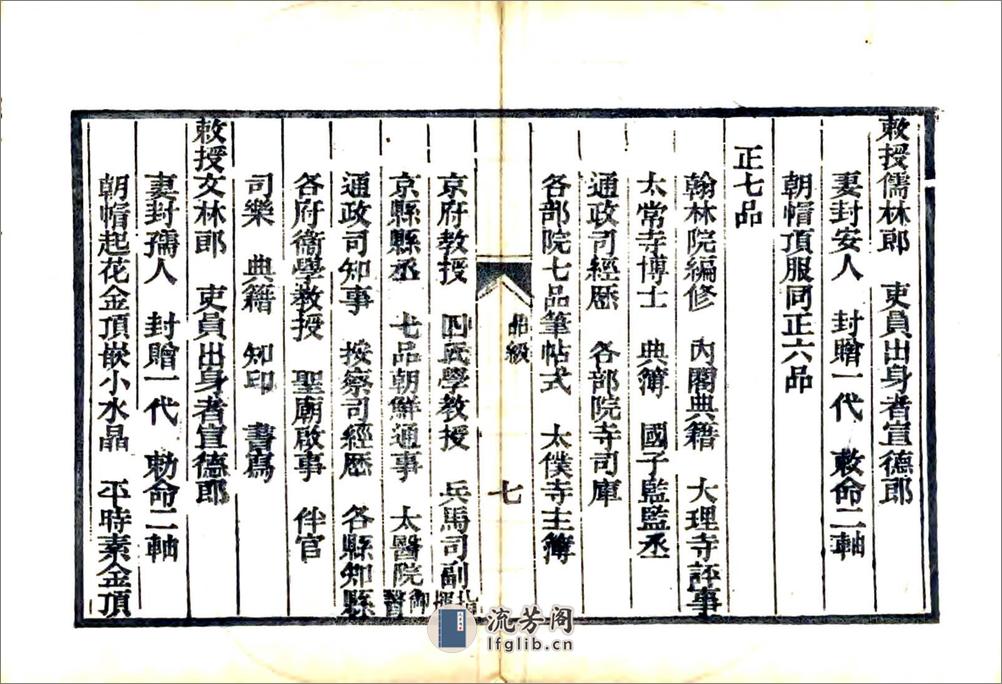 敕授儒林郎　吏員出身者宣德郎
妻封安人　封贈一代　敕命二軸
朝帽頂服同正六品
正七品
翰林院編修　內閣典籍　大理寺評事
太常寺博士　典簿　國子監監丞
通政司經歷　各部院寺司庫
各部院七品筆帖式　太僕寺主簿
品級
七
京府教授　四氏學教授　兵馬司副指揮
京縣縣丞　七品朝鮮通事　太醫院御醫
通政司知事　按察司經歷　各縣知縣
各府衞學教授　聖廟啟事　伴官
司樂　典籍　知印　書寫
敕授文林郎　吏員出身者宣德郎
妻封孺人　封贈一代　勅命二軸
朝帽起花金頂嵌小水晶　平時素金頂
流芳阁
lfglib.cn